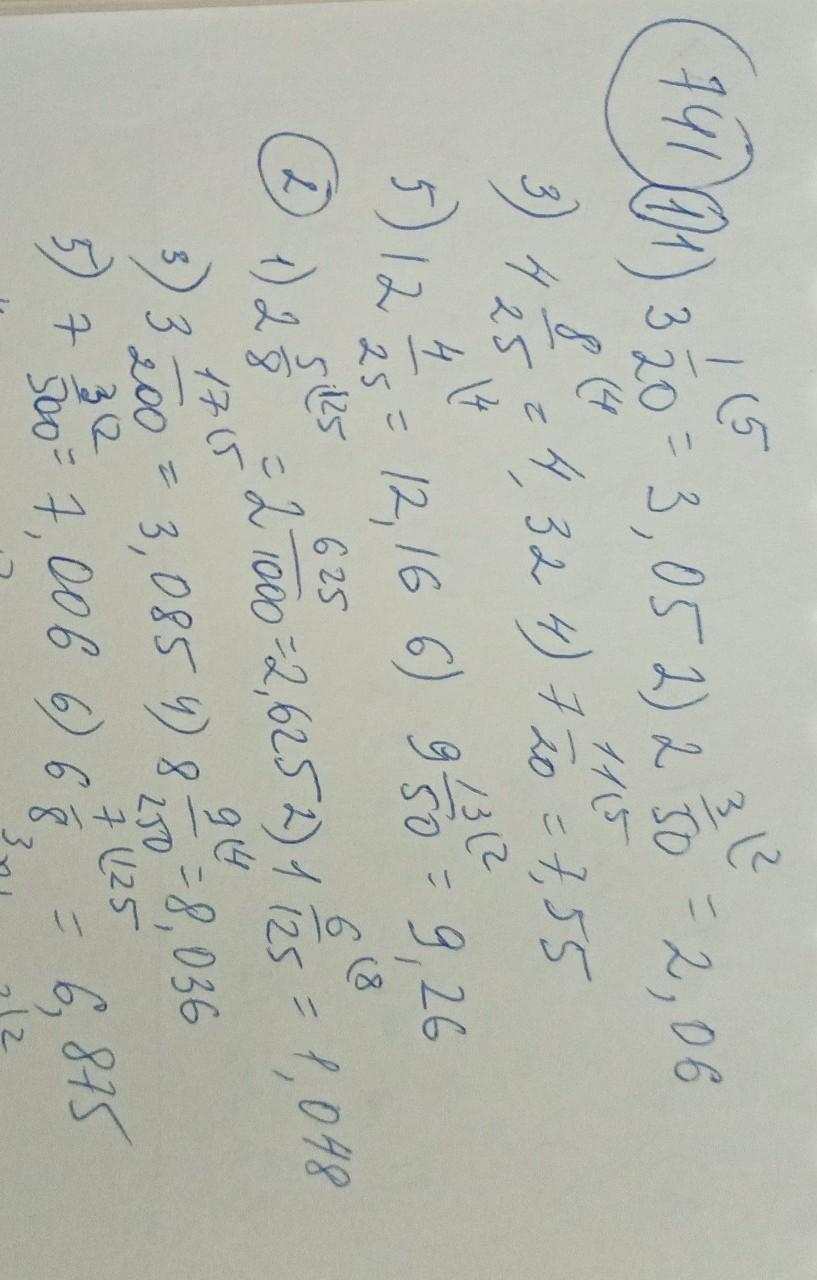 741 1 1) 3 1/20 (5 = 3,05 2) 2 3/50 (2 = 2,06
3) 4 8/25 (4 = 4,32 4) 7 11/20 (5 = 7,55
5) 12 4/25 (4 = 12,16 6) 9 13/50 (2 = 9,26
2 1) 2 5/8 (125 = 2 625/1000 = 2,625 2) 1 6/125 (8 = 1,048
3) 3 17/200 (5 = 3,085 4) 8 9/250 (4 = 8,036
5) 7 3/500 (2 = 7,006 6) 6 7/8 (125 = 6,875